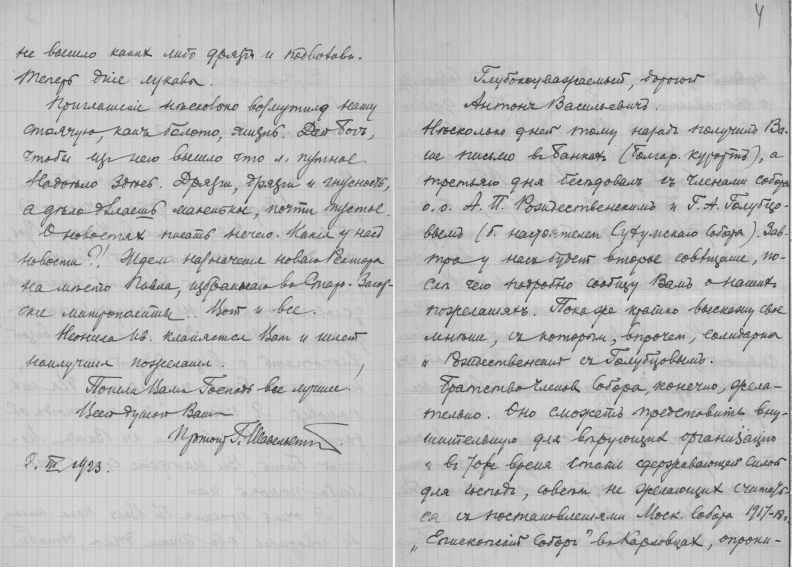 не вышло каких либо дрязг и
Теперь дние лукавы.
Приглашение несколько возмутило нашу
стоячую, как болото, жизнь. Дай Богъ,
чтобы из него вышло что л. путное.
Надоело здесь. Дрязги, дрязги и гнусность,
а дело делаешь маленькое, почти пустое.
О новостях писать нечего. Какие у нас
новости?! Ждем назначения новаго Ректора
на место Павла, избраннаго въ Старо-Загор-
ские митрополиты. Вот и все.
Ив. кланяется Вам и шлет
наилучшия пожелания.
Пошли Вам Господь все лучшее.
Всей душой Ваш
Протоп. Г. Шавельский
8. III 1923.
4
Глубокоуважаемый, дорогой
Антонъ Васильевичъ.
Несколько дней тому назадъ получилъ Ва-
ше письмо въ Банках (Болгар. курортъ), а
третьяго дня беседовалъ съ членами собора
о. о. А. П. Рождественскимъ и Г. А. Голубцо-
вымъ (б. настоятелем Сухумскаго собора). Зав-
тра у нас будет второе совещание, по-
сле чего подробно сообщу Вамъ о наших
пожеланиях. Пока же кратко выскажу свое
мнение, съ которым, впрочем, солидарны
и Рождественский съ Голубцовымъ.
Братство членов Собора, конечно, жела-
тельно. Оно сможетъ представить вну-
шительную для верующих организацию
и въ тоже время стать сдерживающей силой
для господ, совсем не желающих считать-
ся съ постановлениями Моск. Собора 1917-18 г.
„Епископский Соборъ" въ Карловцах, опроки-